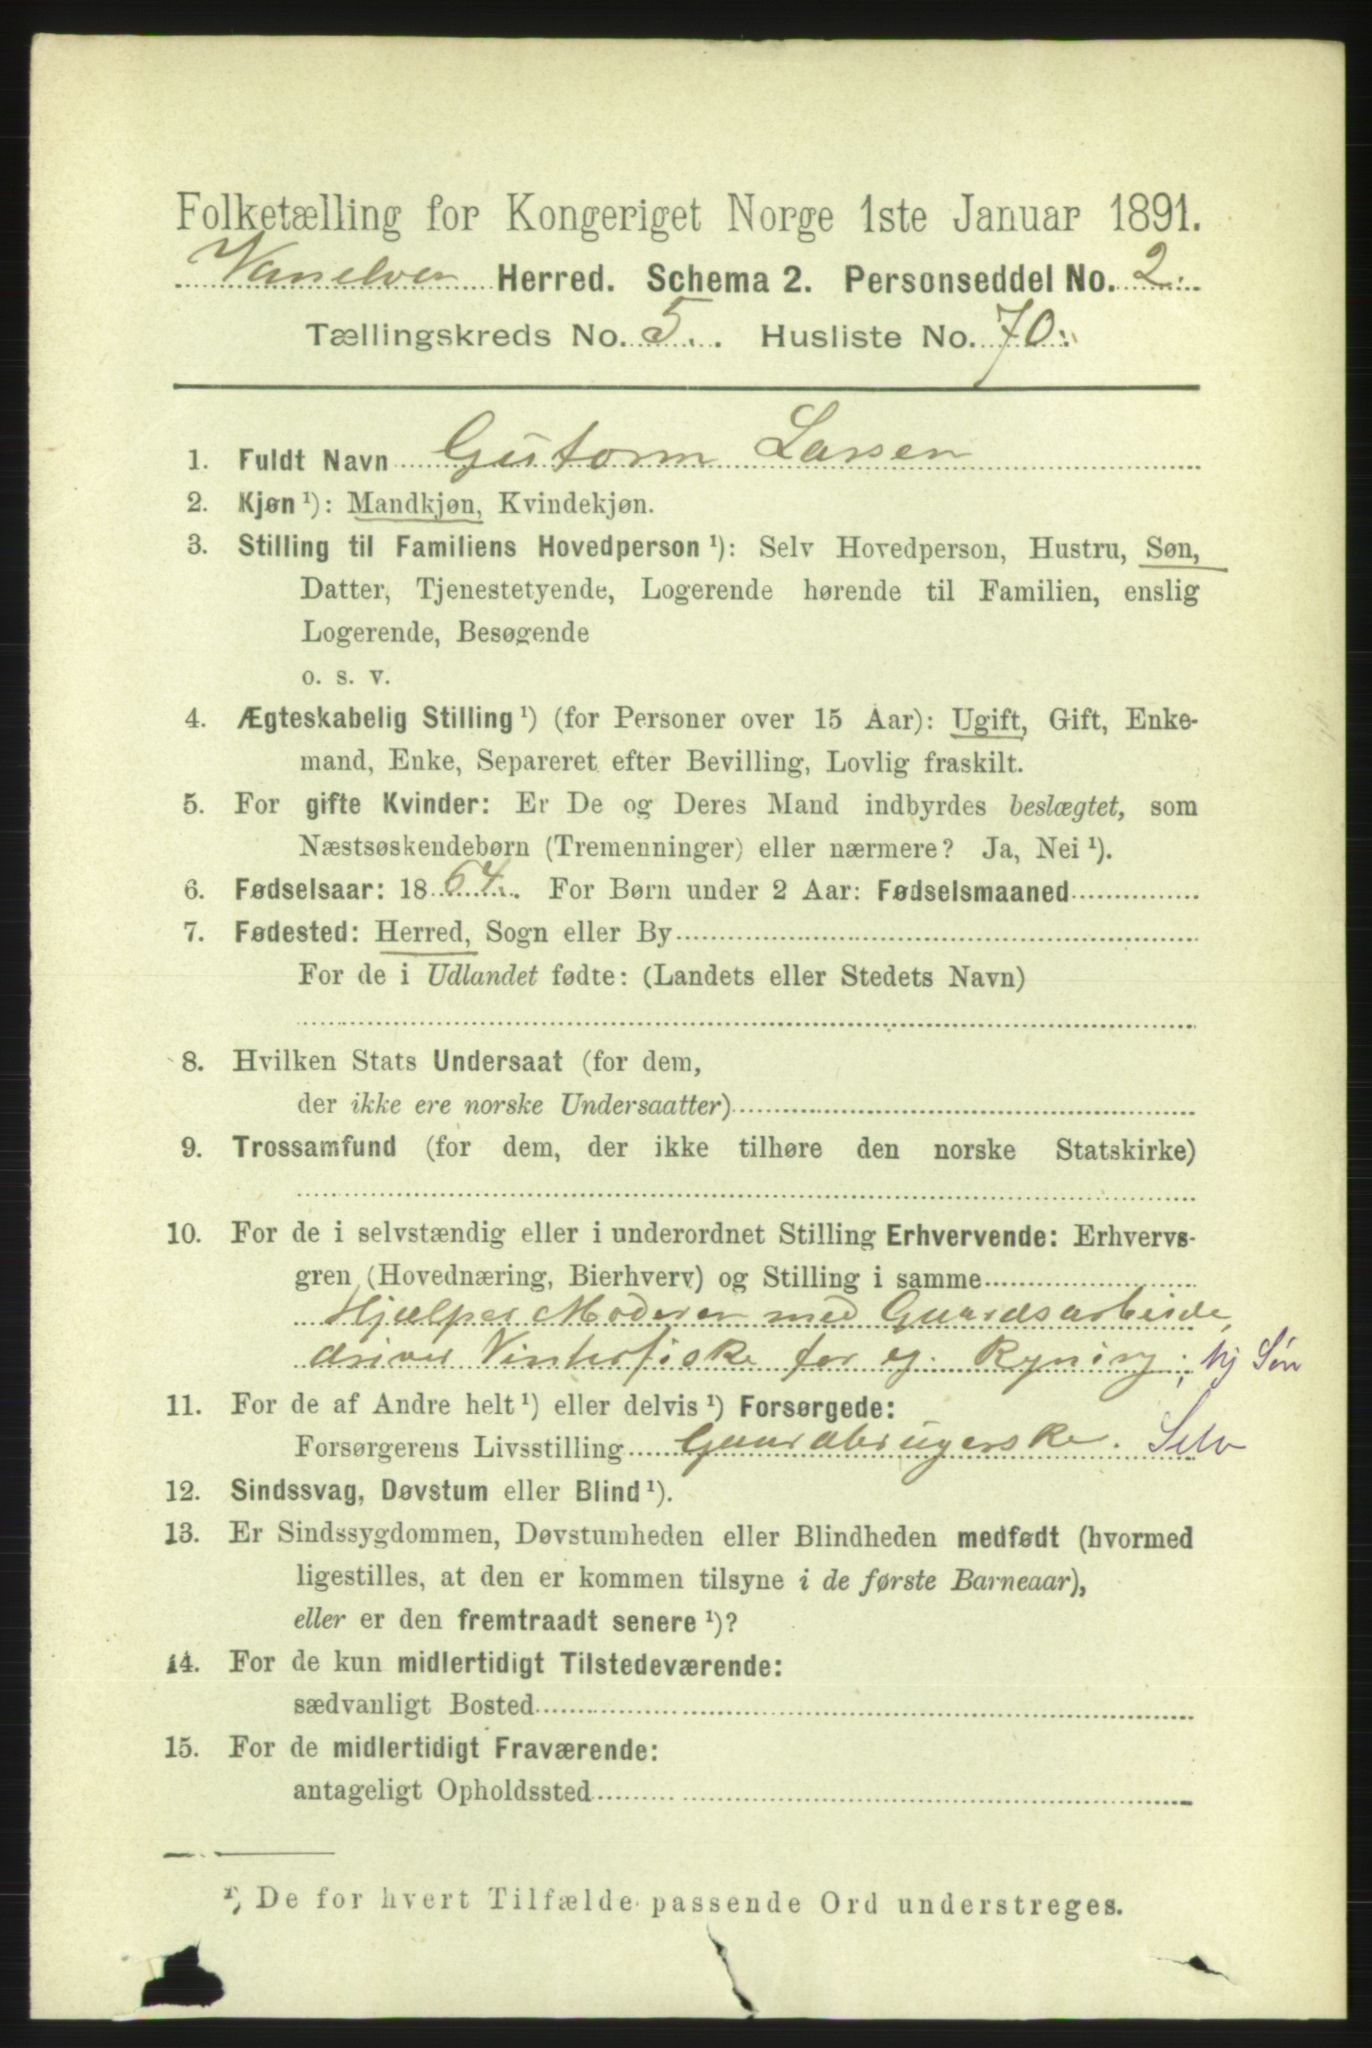 Folketælling for Kongeriget Norge 1ste Januar 1891.
Vanelven Herred. Schema 2. Personseddel No. 2.
Tællingskreds No. 5. Husliste No. 70.
1. Fuldt Navn Gutorm Larsen
2. Kjøn ¹): Mandkjøn, Kvindekjøn.
3. Stilling til Familiens Hovedperson ¹): Selv Hovedperson, Hustru, Søn,
Datter, Tjenestetyende, Logerende hørende til Familien, enslig
Logerende, Besøgende
o. s. v.
4. Ægteskabelig Stilling ¹) (for Personer over 15 Aar): Ugift, Gift, Enke-
mand, Enke, Separeret efter Bevilling, Lovlig fraskilt.
5. For gifte Kvinder: Er De og Deres Mand indbyrdes beslægtet, som
Næstsøskendebørn (Tremenninger) eller nærmere? Ja, Nei ¹).
6. Fødselsaar: 1864. For Børn under 2 Aar: Fødselsmaaned
7. Fødested: Herred, Sogn eller By
For de i Udlandet fødte: (Landets eller Stedets Navn)
8. Hvilken Stats Undersaat (for dem,
der ikke ere norske Undersaatter)
9. Trossamfund (for dem, der ikke tilhøre den norske Statskirke)
10. For de i selvstændig eller i underordnet Stilling Erhvervende: Erhvervs-
gren (Hovednæring, Bierhverv) og Stilling i samme
Hjælper Moderen med Gaardsarbeide,
driver Vinterfiske for ej. Regning; hj Søn
11. For de af Andre helt ¹) eller delvis ¹) Forsørgede:
Forsørgerens Livsstilling Gaardbrugerske. Selv
12. Sindssvag, Døvstum eller Blind ¹).
13. Er Sindssygdommen, Døvstumheden eller Blindheden medfødt (hvormed
ligestilles, at den er kommen tilsyne i de første Barneaar),
eller er den fremtraadt senere ¹)?
14. For de kun midlertidigt Tilstedeværende:
sædvanligt Bosted
15. For de midlertidigt Fraværende:
antageligt Opholdssted
¹) De for hvert Tilfælde passende Ord understreges.